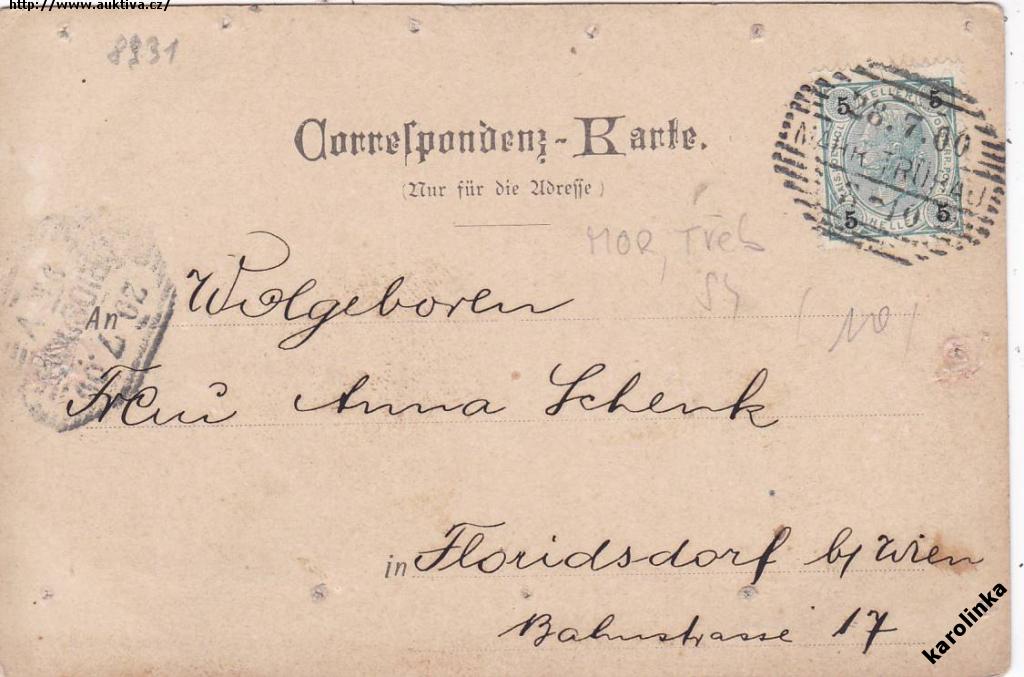 http://www.auktiva.cz/
8931
Correspondenz-Karte.
(Nur für die Adresse)
5 HELLER 5
28.7.00
MÄHR. TRÜBAU
-10
5 HELL 5
MOR, Třeb
Wolgeboren
An
29 7
Frau Anna Schenk
in Floridsdorf b/Wien
Bahnstrasse 17
karolinka